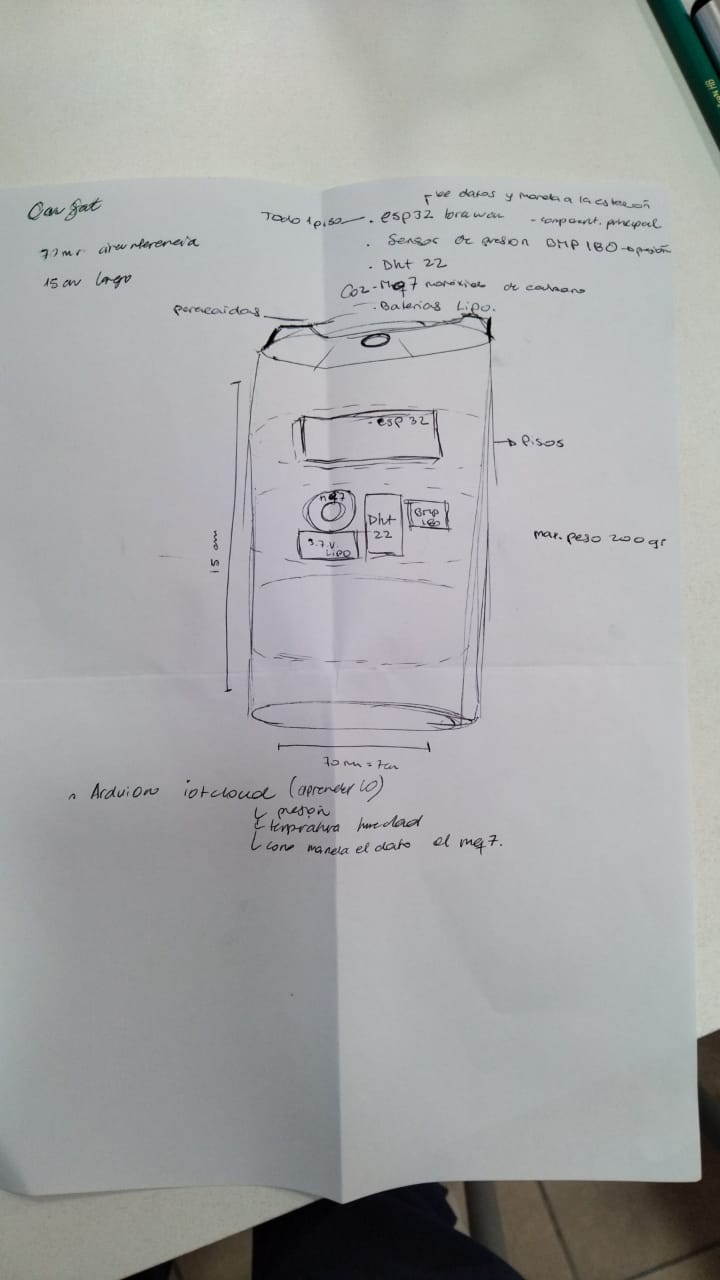 Can Sat
77mm circunferencia
15 cm largo
lee datos y manda a la estación
Todo 1 piso - . esp32 lorawan - component. principal
. Sensor de presion BMP 180 → presión
. Dht 22
Co2 - Mq7 monóxido de carbono
- . Baterias Lipo.
paracaidas
- esp 32
→ Pisos
mq7
Dht 22
Bmp 180
3.7.v. LIPO
15 cm
max. peso 200gr
70 mm = 7cm
Arduiono iot cloud (aprender lo)
presión
temperatura humedad
como manda el dato el mq7.